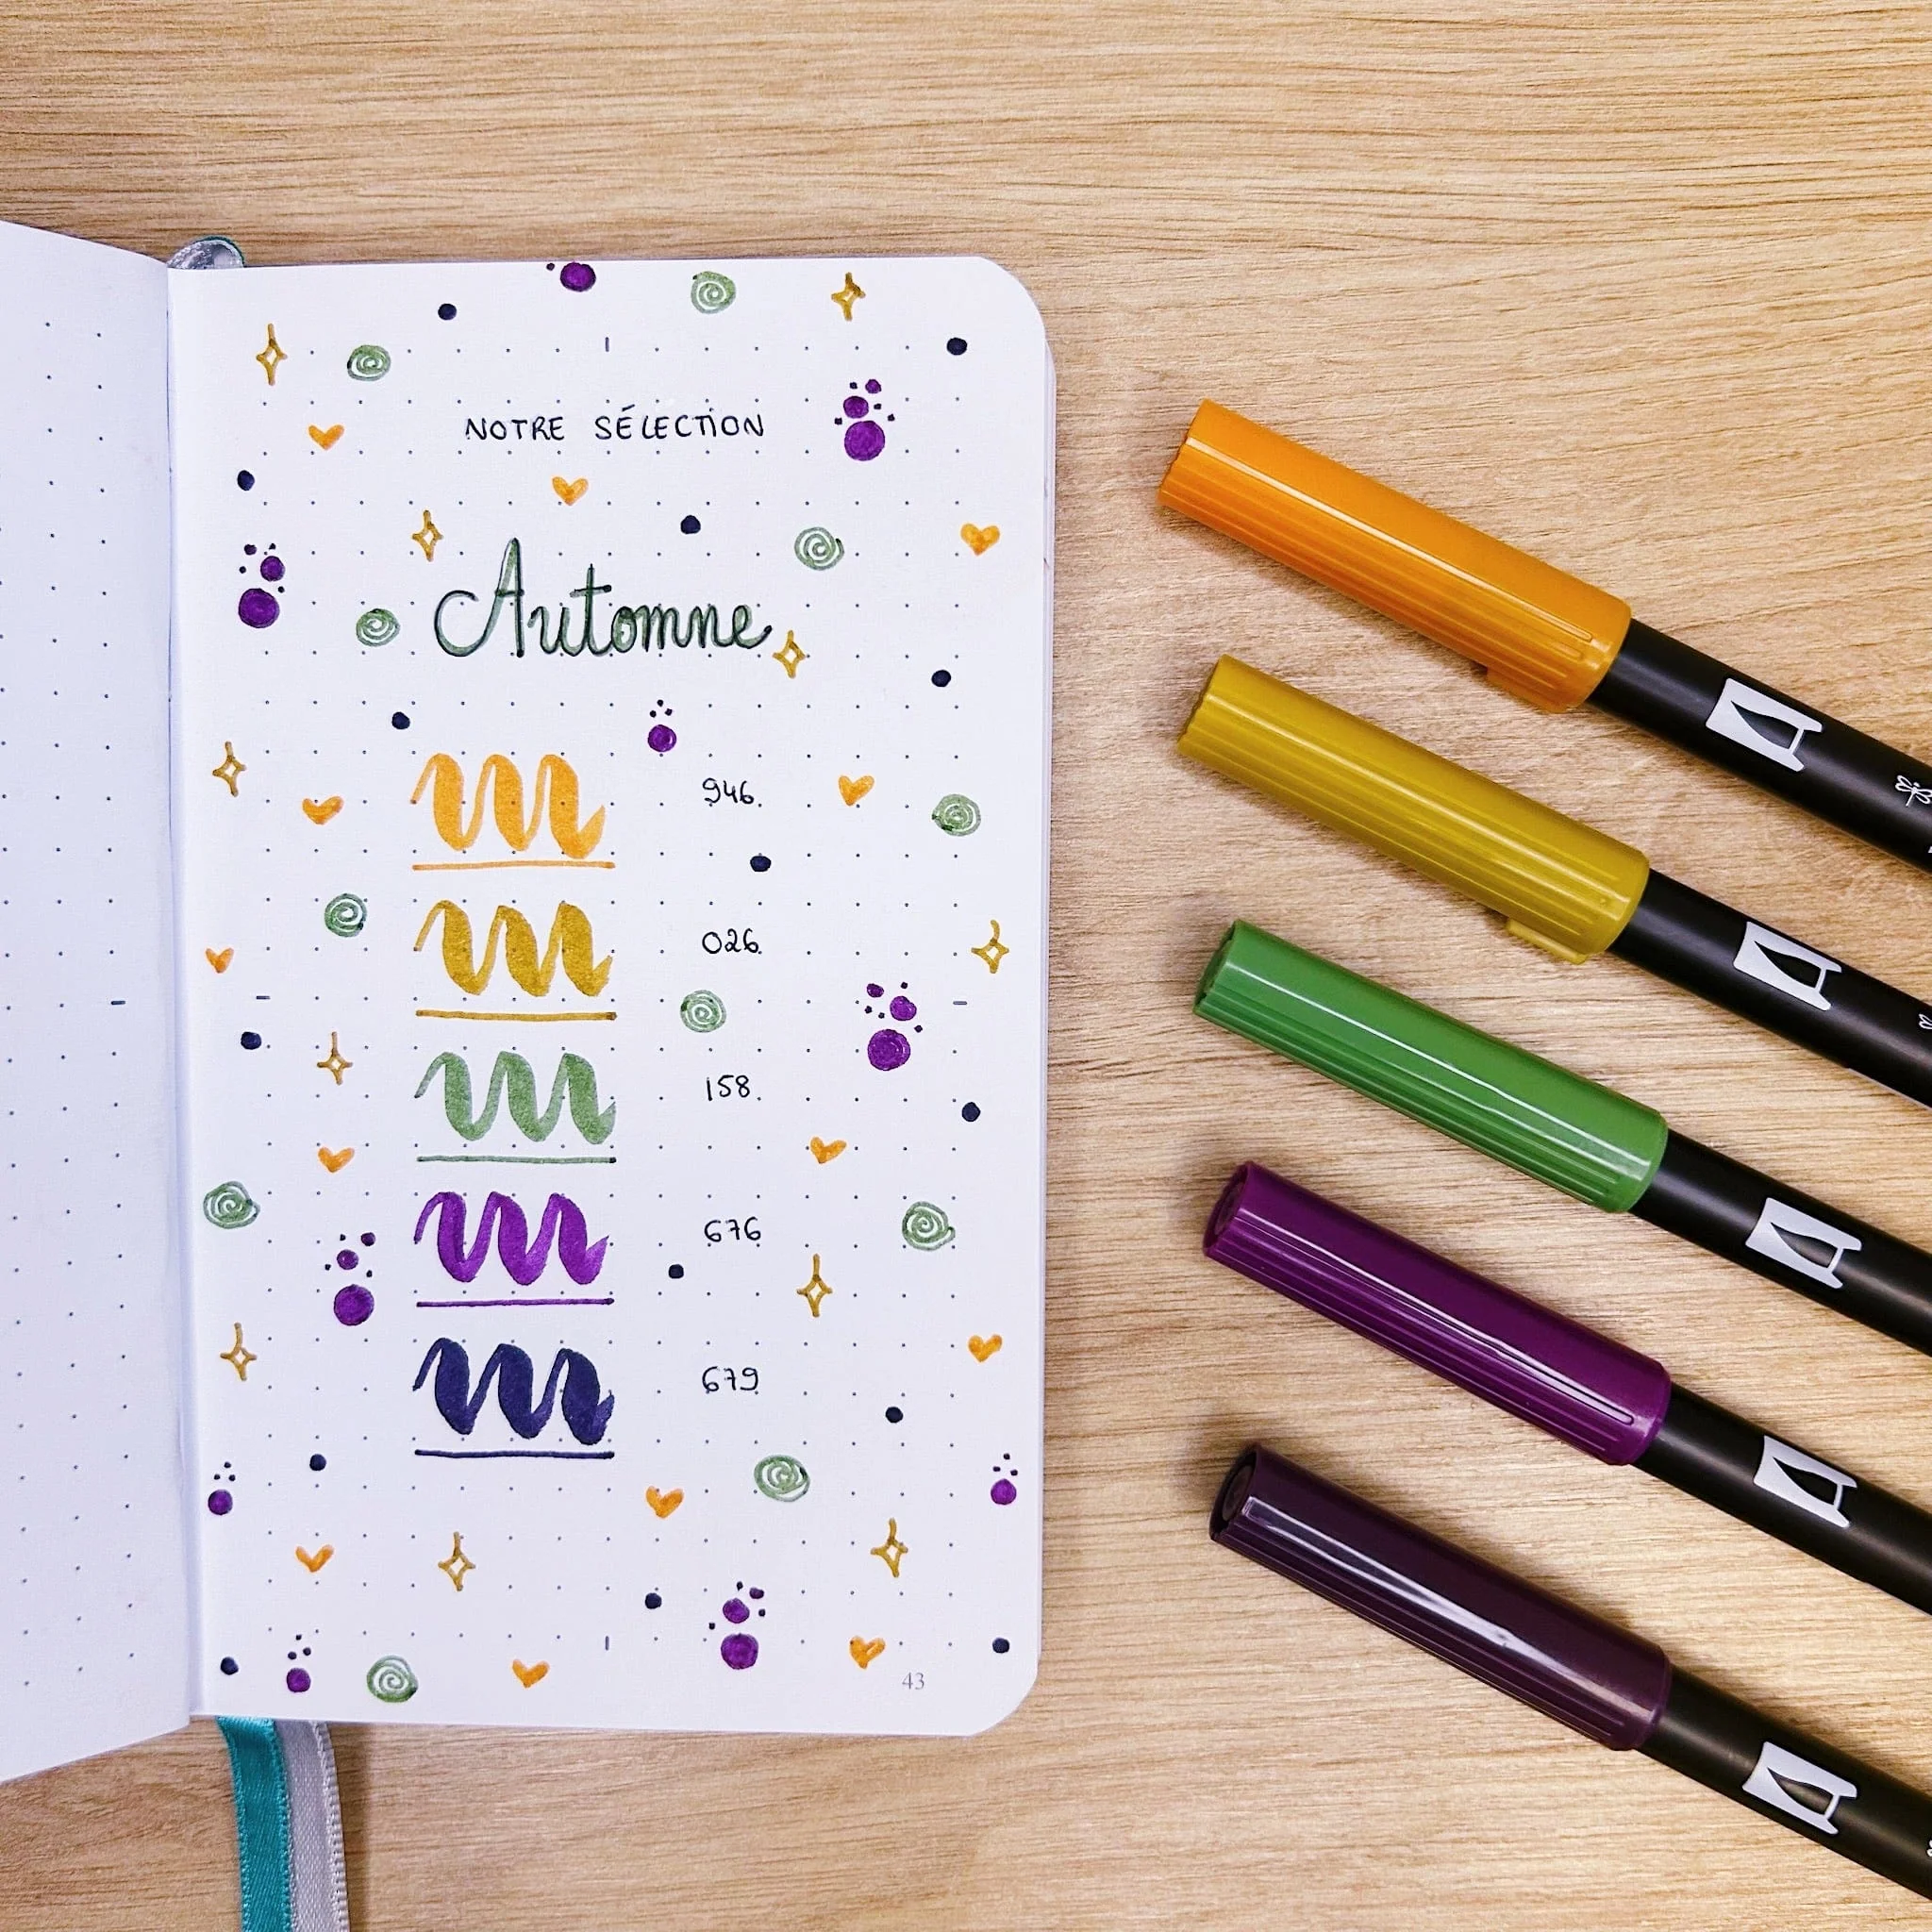 NOTRE SÉLECTION
Automne
946
026
158
676
679
43